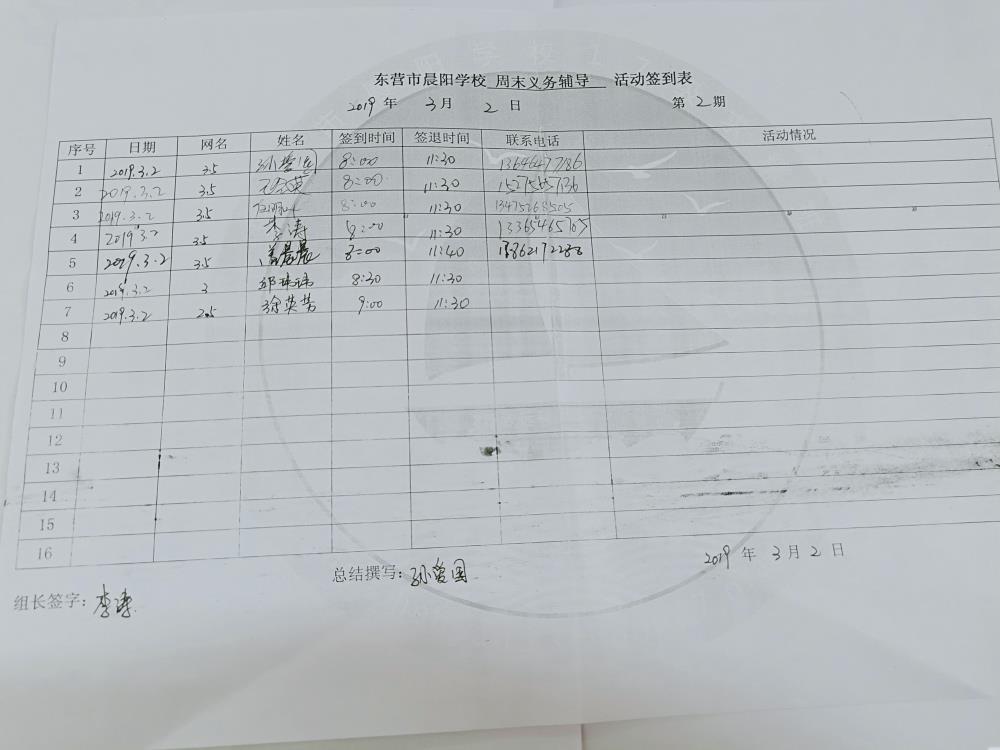 东营市晨阳学校 周末义务辅导 活动签到表
2019 年 3 月 2 日 第 2 期
序号 日期 网名 姓名 签到时间 签退时间 联系电话 活动情况
1 2019.3.2 3.5 8:00 11:30 13646477186
2 2019.3.2 3.5 8:00 11:30 15275657136
3 2019.3.2 3.5 8:00 11:30 13475268505
4 2019.3.2 3.5 李涛 8:00 11:30 13365465705
5 2019.3.2 3.5 8:00 11:40
6 2019.3.2 3 邱珠玮 8:30 11:30
7 2019.3.2 2.5 徐英芳 9:00 11:30
8
9
10
11
12
13
14
15
16
组长签字：李涛
总结撰写：孙曾国
2019 年 3 月 2 日